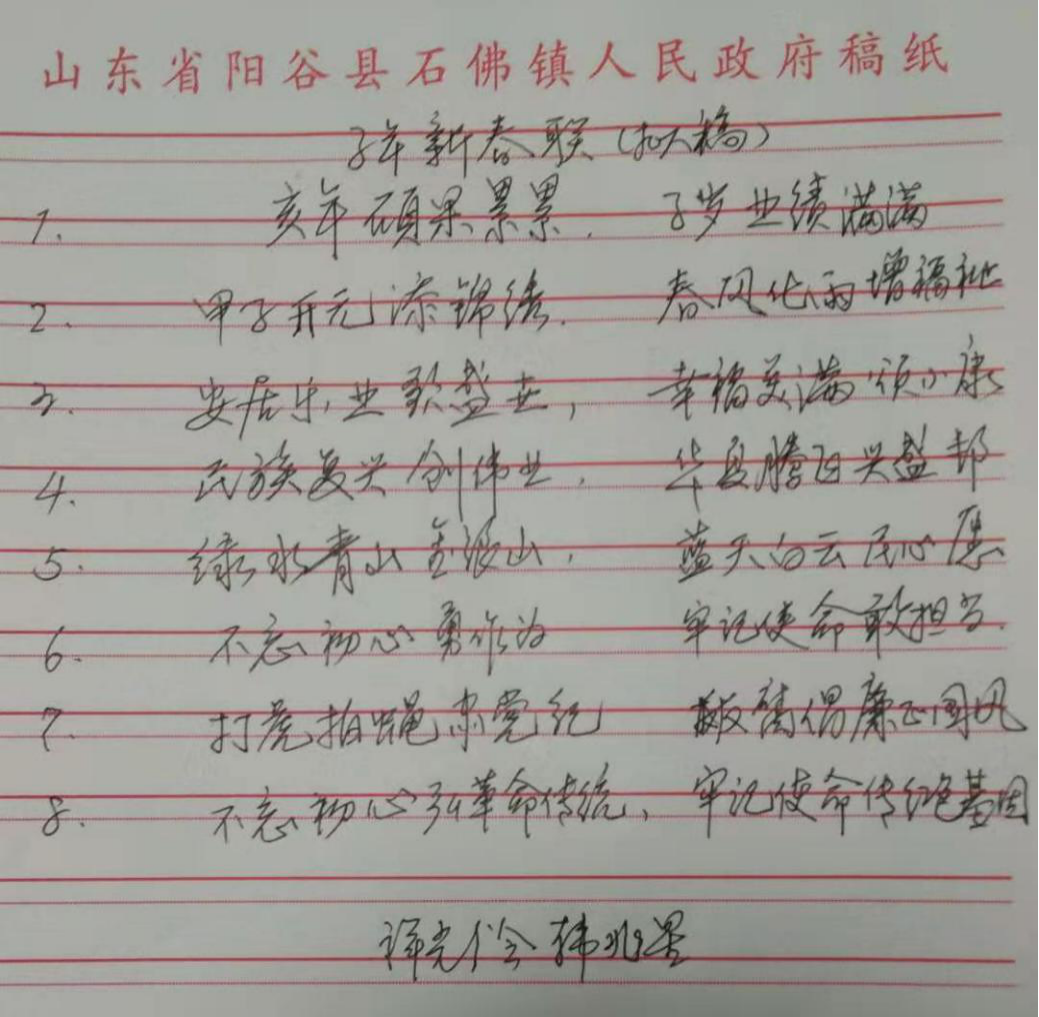 山东省阳谷县石佛镇人民政府稿纸
子年新春联(拟稿)
1. 亥年硕果累累. 子岁业绩满满
2. 甲子开元添锦绣. 春风化雨增福祉
3. 安居乐业歌盛世, 幸福美满颂小康
4. 民族复兴创伟业, 华夏腾飞兴盛邦
5. 绿水青山金银山, 蓝天白云民心愿
6. 不忘初心勇作为 牢记使命敢担当.
7. 打虎拍蝇肃党纪 反腐倡廉正国风
8. 不忘初心弘革命传统, 牢记使命传红色基因
韩兆星